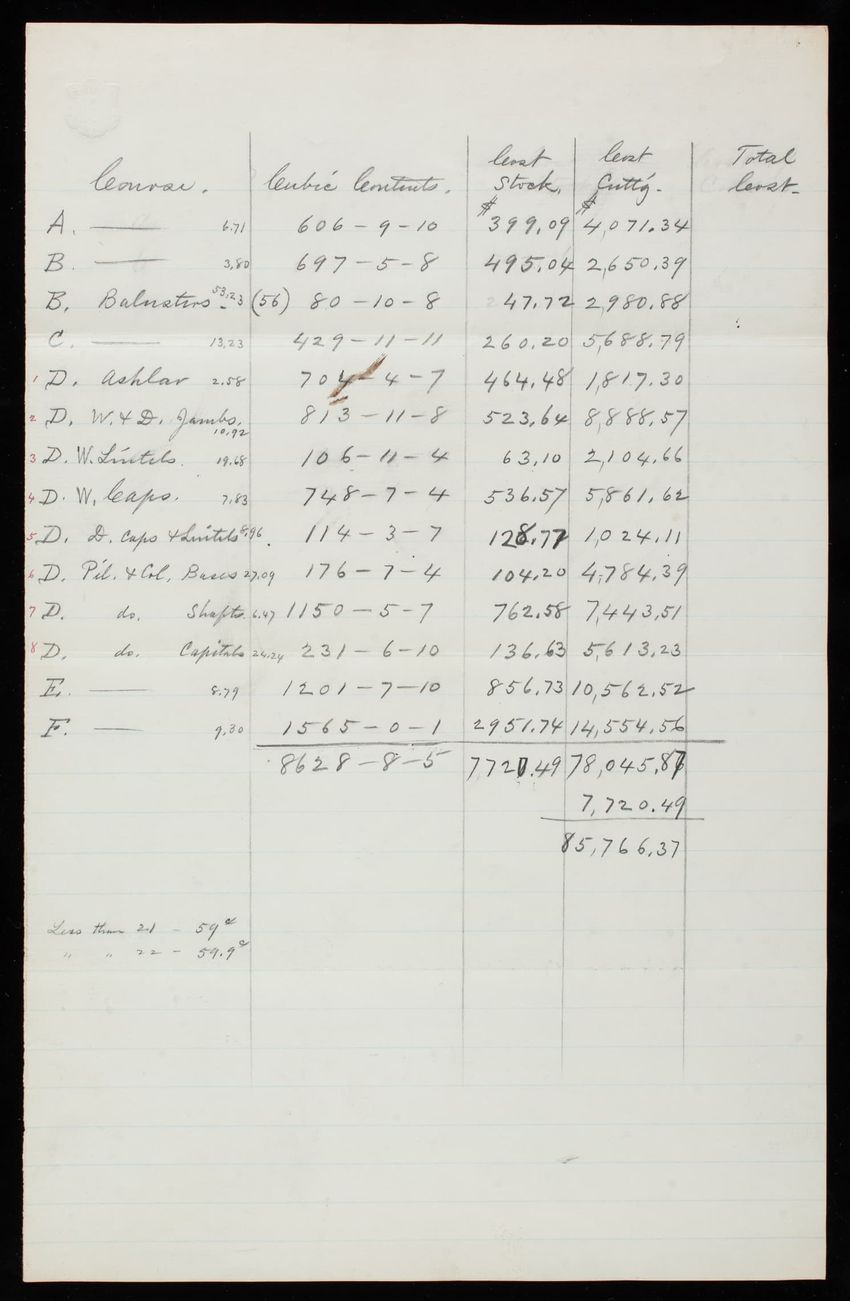 Cost Cost Total
Course. Cubic Contents. Stock. Cutt'g. Cost
$ $
A. — 6.71 606 - 9 - 10 399.09 4,071.34
B. — 3.80 697 - 5 - 8 495.04 2,650.39
B. Balusters 53.23 (56) 80 - 10 - 8 47.72 2,980.88
C. — 13.23 429 - 11 - 11 260.20 5,688.79
1 D. Ashlar 2.58 704 - 4 - 7 464.48 1,817.30
2 D. W. & D. Jambs. 10.92 813 - 11 - 8 523.64 8,888.57
3 D. W. Lintels. 19.68 106 - 11 - 4 63.10 2,104.66
4 D. W. Caps. 7.83 748 - 7 - 4 536.57 5,861.62
5 D. D. Caps & Lintels 8.96. 114 - 3 - 7 128.77 1,024.11
6 D. Pil. & Col. Bases 27.09 176 - 7 - 4 104.20 4,784.39
7 D. do. Shafts. 6.47 1150 - 5 - 7 762.58 7,443.51
8 D. do. Capitals 24.24 231 - 6 - 10 136.63 5,613.23
E. — 8.79 1201 - 7 - 10 856.73 10,562.52
F. — 9.30 1565 - 0 - 1 2951.74 14,554.56
8628 - 8 - 5 7720.49 78,045.87
7,720.49
85,766.37
Less than 21 - 59¢
" " 22 - 59.9¢